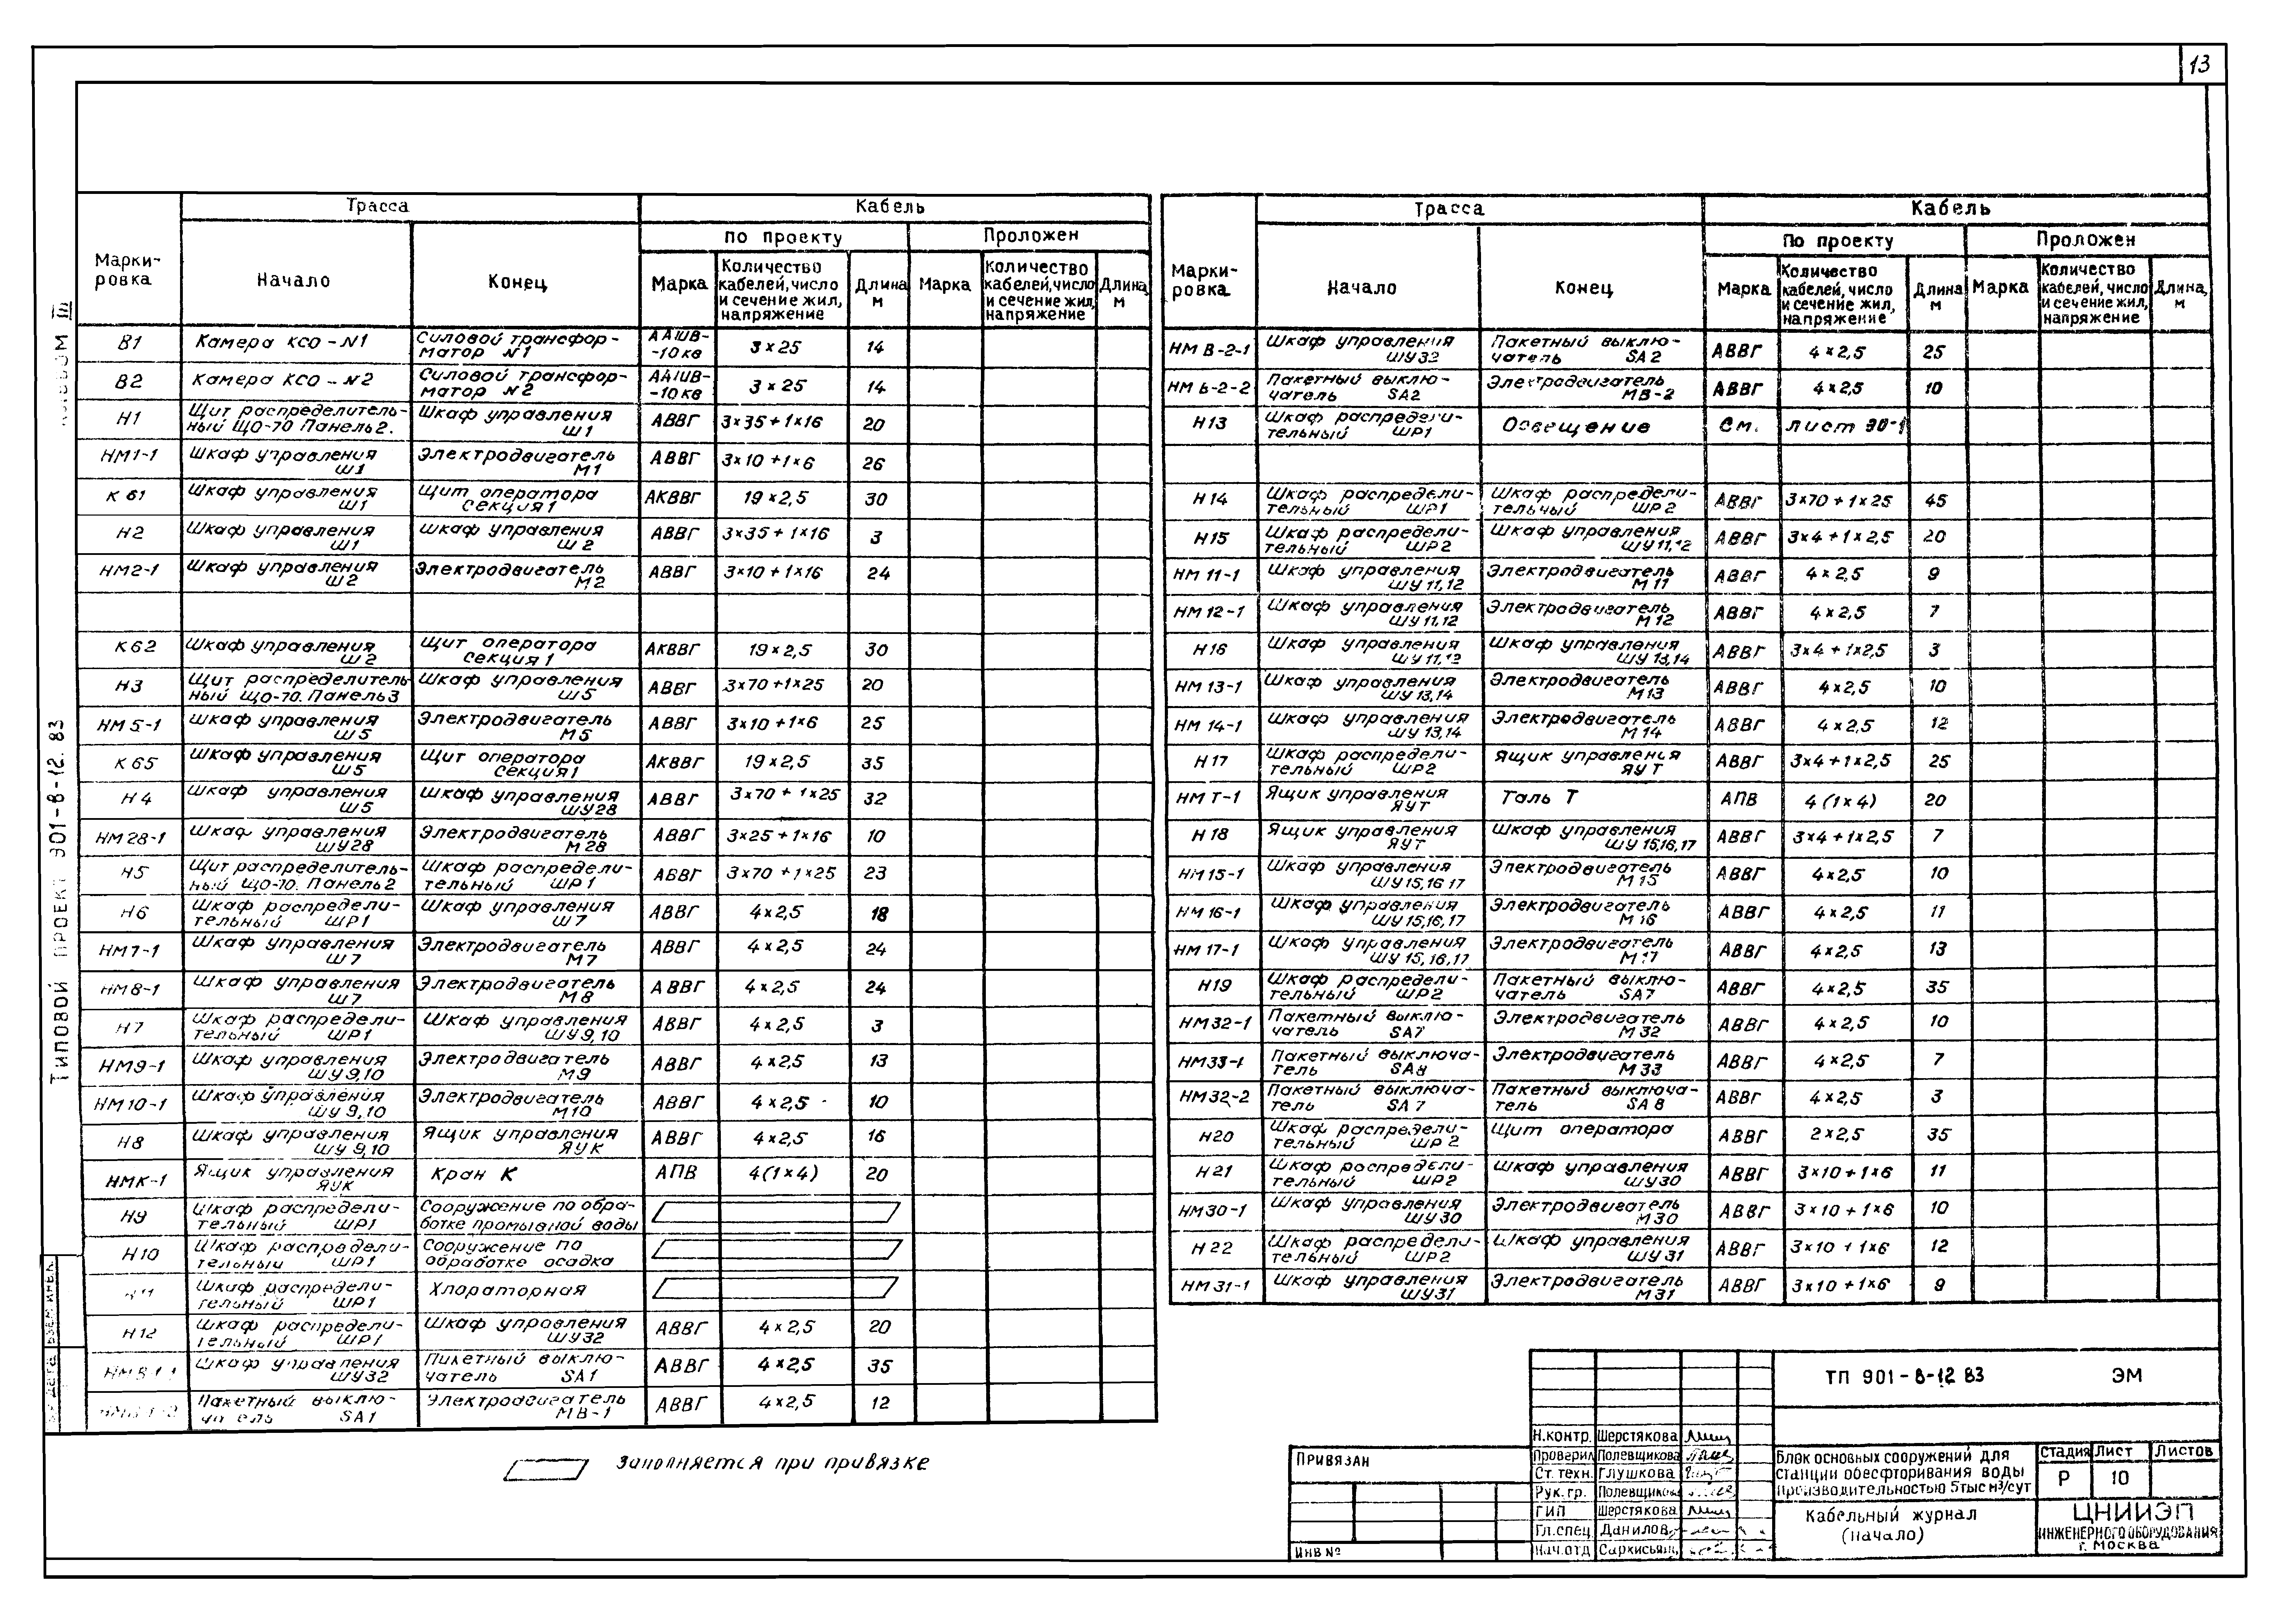 13
Типовой проект 901-8-12.83
Трасса
Кабель
По проекту
Проложен
Марки-
ровка
Начало
Конец
Марка
Количество кабелей, число и сечение жил, напряжение
Длина, м
Марка
Количество кабелей, число и сечение жил, напряжение
Длина, м
В1 Камера КСО-N1 Силовой трансформатор N1 ААШВ-10кв 3×25 14
В2 Камера КСО-N2 Силовой трансформатор N2 ААШВ-10кв 3×25 14
Н1 Щит распределительный ЩО-70 Панель 2. Шкаф управления Ш1 АВВГ 3×35+1×16 20
НМ1-1 Шкаф управления Ш1 Электродвигатель М1 АВВГ 3×10+1×6 26
К61 Шкаф управления Ш1 Щит оператора секция 1 АКВВГ 19×2,5 30
Н2 Шкаф управления Ш1 Шкаф управления Ш2 АВВГ 3×35+1×16 3
НМ2-1 Шкаф управления Ш2 Электродвигатель М2 АВВГ 3×10+1×16 24
К62 Шкаф управления Ш2 Щит оператора секция 1 АКВВГ 19×2,5 30
Н3 Щит распределительный ЩО-70. Панель 3 Шкаф управления Ш5 АВВГ 3×70+1×25 20
НМ5-1 Шкаф управления Ш5 Электродвигатель М5 АВВГ 3×10+1×6 25
К65 Шкаф управления Ш5 Щит оператора секция 1 АКВВГ 19×2,5 35
Н4 Шкаф управления Ш5 Шкаф управления ШУ28 АВВГ 3×70+1×25 32
НМ28-1 Шкаф управления ШУ28 Электродвигатель М28 АВВГ 3×25+1×16 10
Н5 Щит распределительный ЩО-70. Панель 2 Шкаф распределительный ШР1 АВВГ 3×70+1×25 23
Н6 Шкаф распределительный ШР1 Шкаф управления Ш7 АВВГ 4×2,5 18
НМ7-1 Шкаф управления Ш7 Электродвигатель М7 АВВГ 4×2,5 24
НМ8-1 Шкаф управления Ш7 Электродвигатель М8 АВВГ 4×2,5 24
Н7 Шкаф распределительный ШР1 Шкаф управления ШУ9,10 АВВГ 4×2,5 3
НМ9-1 Шкаф управления ШУ9,10 Электродвигатель М9 АВВГ 4×2,5 13
НМ10-1 Шкаф управления ШУ9,10 Электродвигатель М10 АВВГ 4×2,5 10
Н8 Шкаф управления ШУ9,10 Ящик управления ЯУК АВВГ 4×2,5 16
НМК-1 Ящик управления ЯУК Кран К АПВ 4(1×4) 20
Н9 Шкаф распределительный ШР1 Сооружение по обработке промывной воды
Н10 Шкаф распределительный ШР1 Сооружение по обработке осадка
Шкаф распределительный ШР1 Хлораторная
Н12 Шкаф распределительный ШР1 Шкаф управления ШУ32 АВВГ 4×2,5 20
Шкаф управления ШУ32 Пакетный выключатель SA1 АВВГ 4×2,5 35
Пакетный выключатель SA1 Электродвигатель МВ-1 АВВГ 4×2,5 12
Заполняется при привязке
Трасса
Кабель
По проекту
Проложен
Марки-
ровка
Начало
Конец
Марка
Количество кабелей, число и сечение жил, напряжение
Длина м
Марка
Количество кабелей, число и сечение жил, напряжение
Длина, м
НМ В-2-1 Шкаф управления ШУ32 Пакетный выключатель SA2 АВВГ 4×2,5 25
НМ В-2-2 Пакетный выключатель SA2 Электродвигатель МВ-2 АВВГ 4×2,5 10
Н13 Шкаф распределительный ШР1 Освещение См. лист ЭО-1
Н14 Шкаф распределительный ШР1 Шкаф распределительный ШР2 АВВГ 3×70+1×25 45
Н15 Шкаф распределительный ШР2 Шкаф управления ШУ11,12 АВВГ 3×4+1×2,5 20
НМ11-1 Шкаф управления ШУ11,12 Электродвигатель М11 АВВГ 4×2,5 9
НМ12-1 Шкаф управления ШУ11,12 Электродвигатель М12 АВВГ 4×2,5 7
Н16 Шкаф управления ШУ11,12 Шкаф управления ШУ13,14 АВВГ 3×4+1×2,5 3
НМ13-1 Шкаф управления ШУ13,14 Электродвигатель М13 АВВГ 4×2,5 10
НМ14-1 Шкаф управления ШУ13,14 Электродвигатель М14 АВВГ 4×2,5 12
Н17 Шкаф распределительный ШР2 Ящик управления ЯУТ АВВГ 3×4+1×2,5 25
НМТ-1 Ящик управления ЯУТ Таль Т АПВ 4(1×4) 20
Н18 Ящик управления ЯУТ Шкаф управления ШУ15,16,17 АВВГ 3×4+1×2,5 7
НМ15-1 Шкаф управления ШУ15,16,17 Электродвигатель М15 АВВГ 4×2,5 10
НМ16-1 Шкаф управления ШУ15,16,17 Электродвигатель М16 АВВГ 4×2,5 11
НМ17-1 Шкаф управления ШУ15,16,17 Электродвигатель М17 АВВГ 4×2,5 13
Н19 Шкаф распределительный ШР2 Пакетный выключатель SA7 АВВГ 4×2,5 35
НМ32-1 Пакетный выключатель SA7 Электродвигатель М32 АВВГ 4×2,5 10
НМ33-1 Пакетный выключатель SA8 Электродвигатель М33 АВВГ 4×2,5 7
НМ32-2 Пакетный выключатель SA7 Пакетный выключатель SA8 АВВГ 4×2,5 3
Н20 Шкаф распределительный ШР2 Щит оператора АВВГ 2×2,5 35
Н21 Шкаф распределительный ШР2 Шкаф управления ШУ30 АВВГ 3×10+1×6 11
НМ30-1 Шкаф управления ШУ30 Электродвигатель М30 АВВГ 3×10+1×6 10
Н22 Шкаф распределительный ШР2 Шкаф управления ШУ31 АВВГ 3×10+1×6 12
НМ31-1 Шкаф управления ШУ31 Электродвигатель М31 АВВГ 3×10+1×6 9
Привязан
Инв №
Н.контр. Шерстякова
Проверил Полевщикова
Ст. техн. Глушкова
Рук. гр. Полевщикова
ГИП Шерстякова
Гл.спец. Данилов
Нач.отд Саркисьян
ТП 901-8-12 83 ЭМ
Блок основных сооружений для
станции обесфторивания воды
производительностью 5 тыс м³/сут
Стадия Лист Листов
Р 10
Кабельный журнал
(начало)
ЦНИИЭП
инженерного оборудования
г. Москва